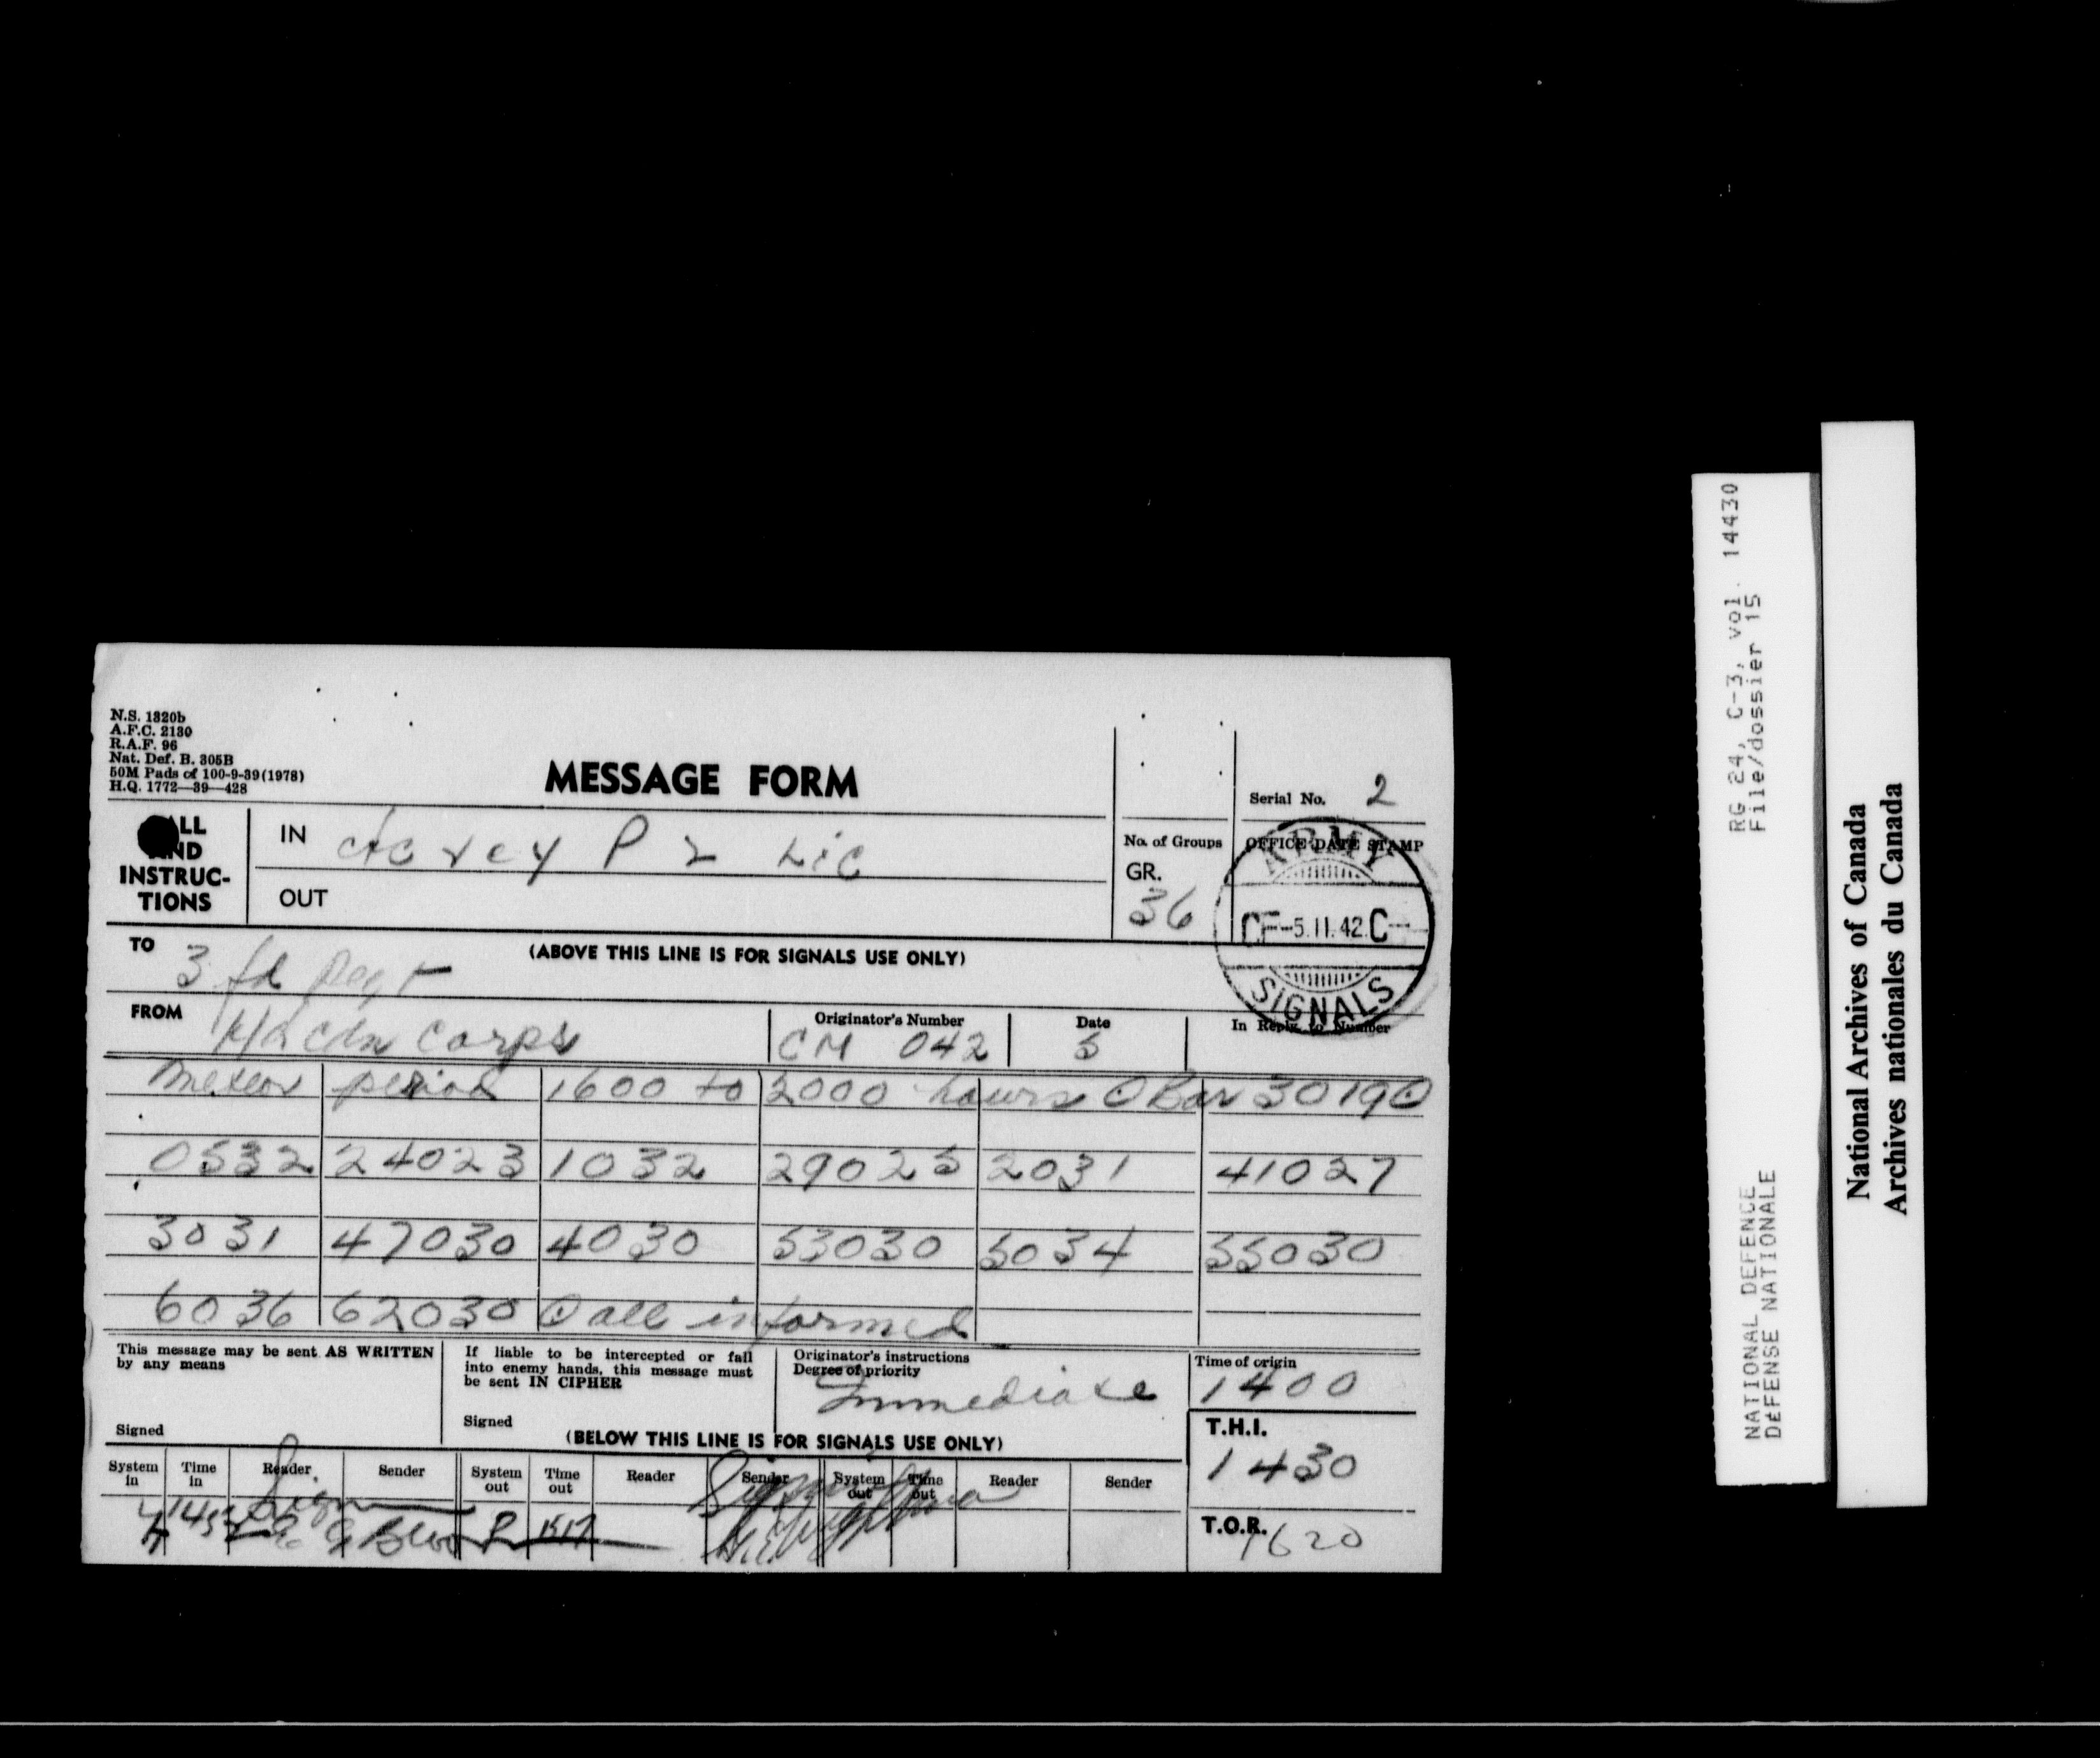 N.S. 1320b
A.F.C. 2130
R.A.F. 96
Nat. Def. B. 305B
50M Pads of 100-9-39(1978)
H.Q. 1772—39—428
MESSAGE FORM
Serial No. 2
ALL
AND
INSTRUC-
TIONS
IN
P 2
OUT
No. of Groups
GR.
36
OFFICE DATE STAMP
ARMY
CF-5.11.42.C
SIGNALS
TO 3 fd Regt
(ABOVE THIS LINE IS FOR SIGNALS USE ONLY)
FROM cdn corps
Originator's Number
CM 042
Date
5
In Reply to Number
meteor period 1600 to 2000 hours ⊙ Bar 3019 ⊙
0532 24023 1032 29025 2031 41027
3031 47030 4030 53030 5034 55030
6036 62030 ⊙ all informed
This message may be sent AS WRITTEN
by any means
Signed
If liable to be intercepted or fall
into enemy hands, this message must
be sent IN CIPHER
Signed
Originator's instructions
Degree of priority
Immediate
Time of origin
1400
(BELOW THIS LINE IS FOR SIGNALS USE ONLY)
T.H.I.
1430
System in Time in Reader Sender System out Time out Reader Sender System out Time out Reader Sender
R 1517
T.O.R. 1620
RG 24, C-3, vol. 14430
File/dossier 15
NATIONAL DEFENCE
DéFENSE NATIONALE
National Archives of Canada
Archives nationales du Canada